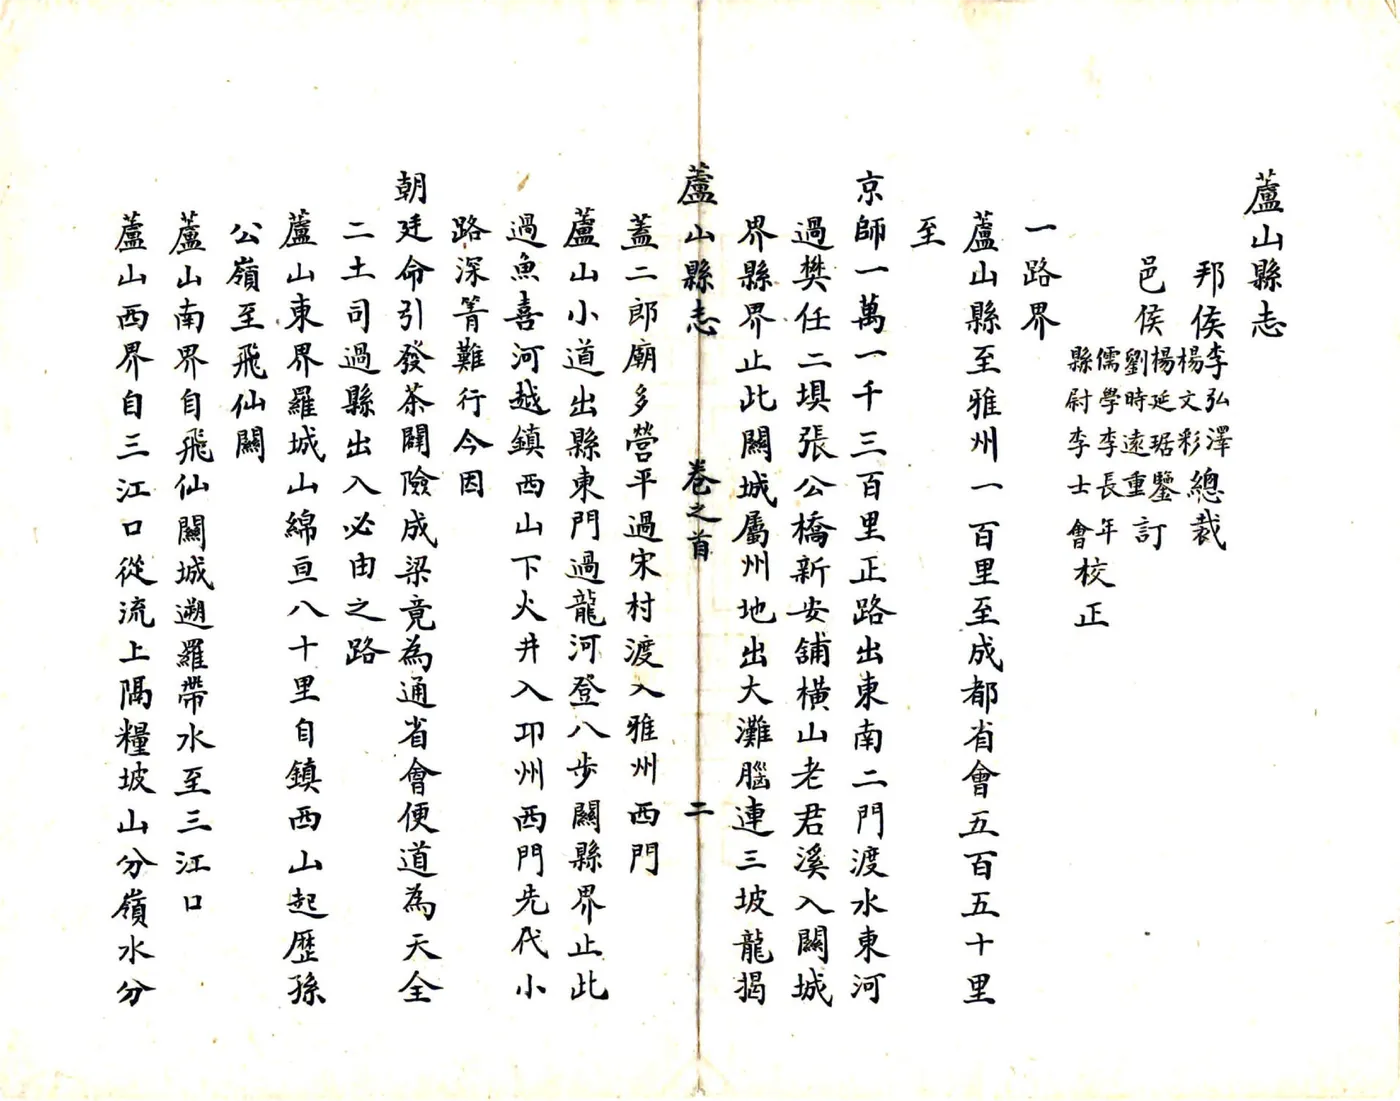 蘆山縣志
邦侯李弘澤楊文彩總裁
邑侯楊延琚鑒劉時遠重訂
儒學李長年縣尉李士會校正
一路界
蘆山縣至雅州一百里至成都省會五百五十里
至
京師一萬一千三百里正路出東南二門渡水東河
過樊任二垻張公橋新安舖橫山老君溪入關城
界縣界止此關城屬州地出大灘腦連三坡龍揭
蘆山縣志 卷之首 二
蓋二郎廟多營平過宋村渡入雅州西門
蘆山小道出縣東門過龍河登八步關縣界止此
過魚喜河越鎮西山下火井入邛州西門先代小
路深箐難行今因
朝廷命引發茶闢險成梁竟為通省會便道為天全
二土司過縣出入必由之路
蘆山東界羅城山綿亘八十里自鎮西山起歷孫
公嶺至飛仙關
蘆山南界自飛仙關城遡羅帶水至三江口
蘆山西界自三江口從流上隅糧坡山分嶺水分